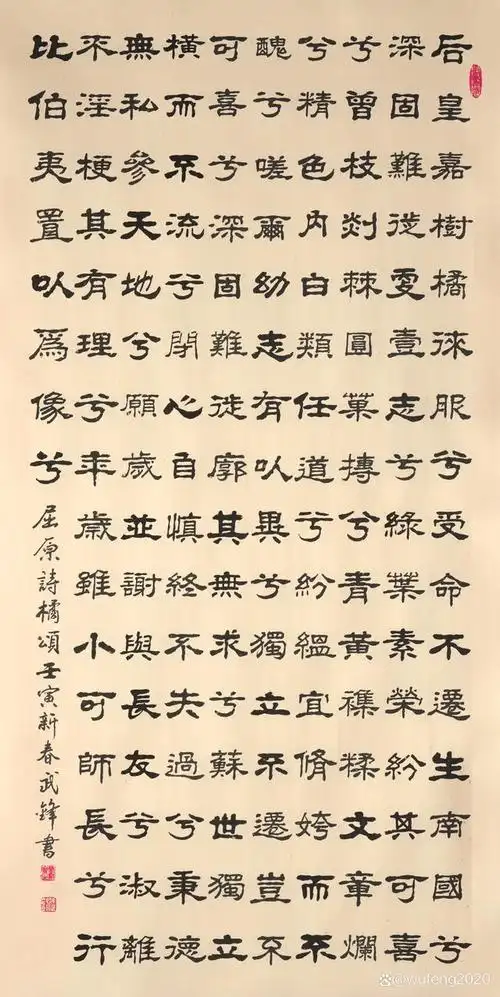 后皇嘉樹橘徠服兮受命不遷生南國兮
深固難徙更壹志兮綠葉素榮紛其可喜
兮曾枝剡棘圓菓摶兮青黃襍糅文章爛
兮精色內白類任道兮紛縕宜脩姱而不
醜兮嗟爾幼志有以異兮獨立不遷豈不
可喜兮深固難徙廓其無求兮蘇世獨立
橫而不流兮閉心自慎終不失過兮秉德
無私參天地兮願歲並謝與長友兮淑離
不淫梗其有理兮年歲雖小可師長兮行
比伯夷置以爲像兮
屈原詩橘頌壬寅新春武鋒書
@wufeng2020